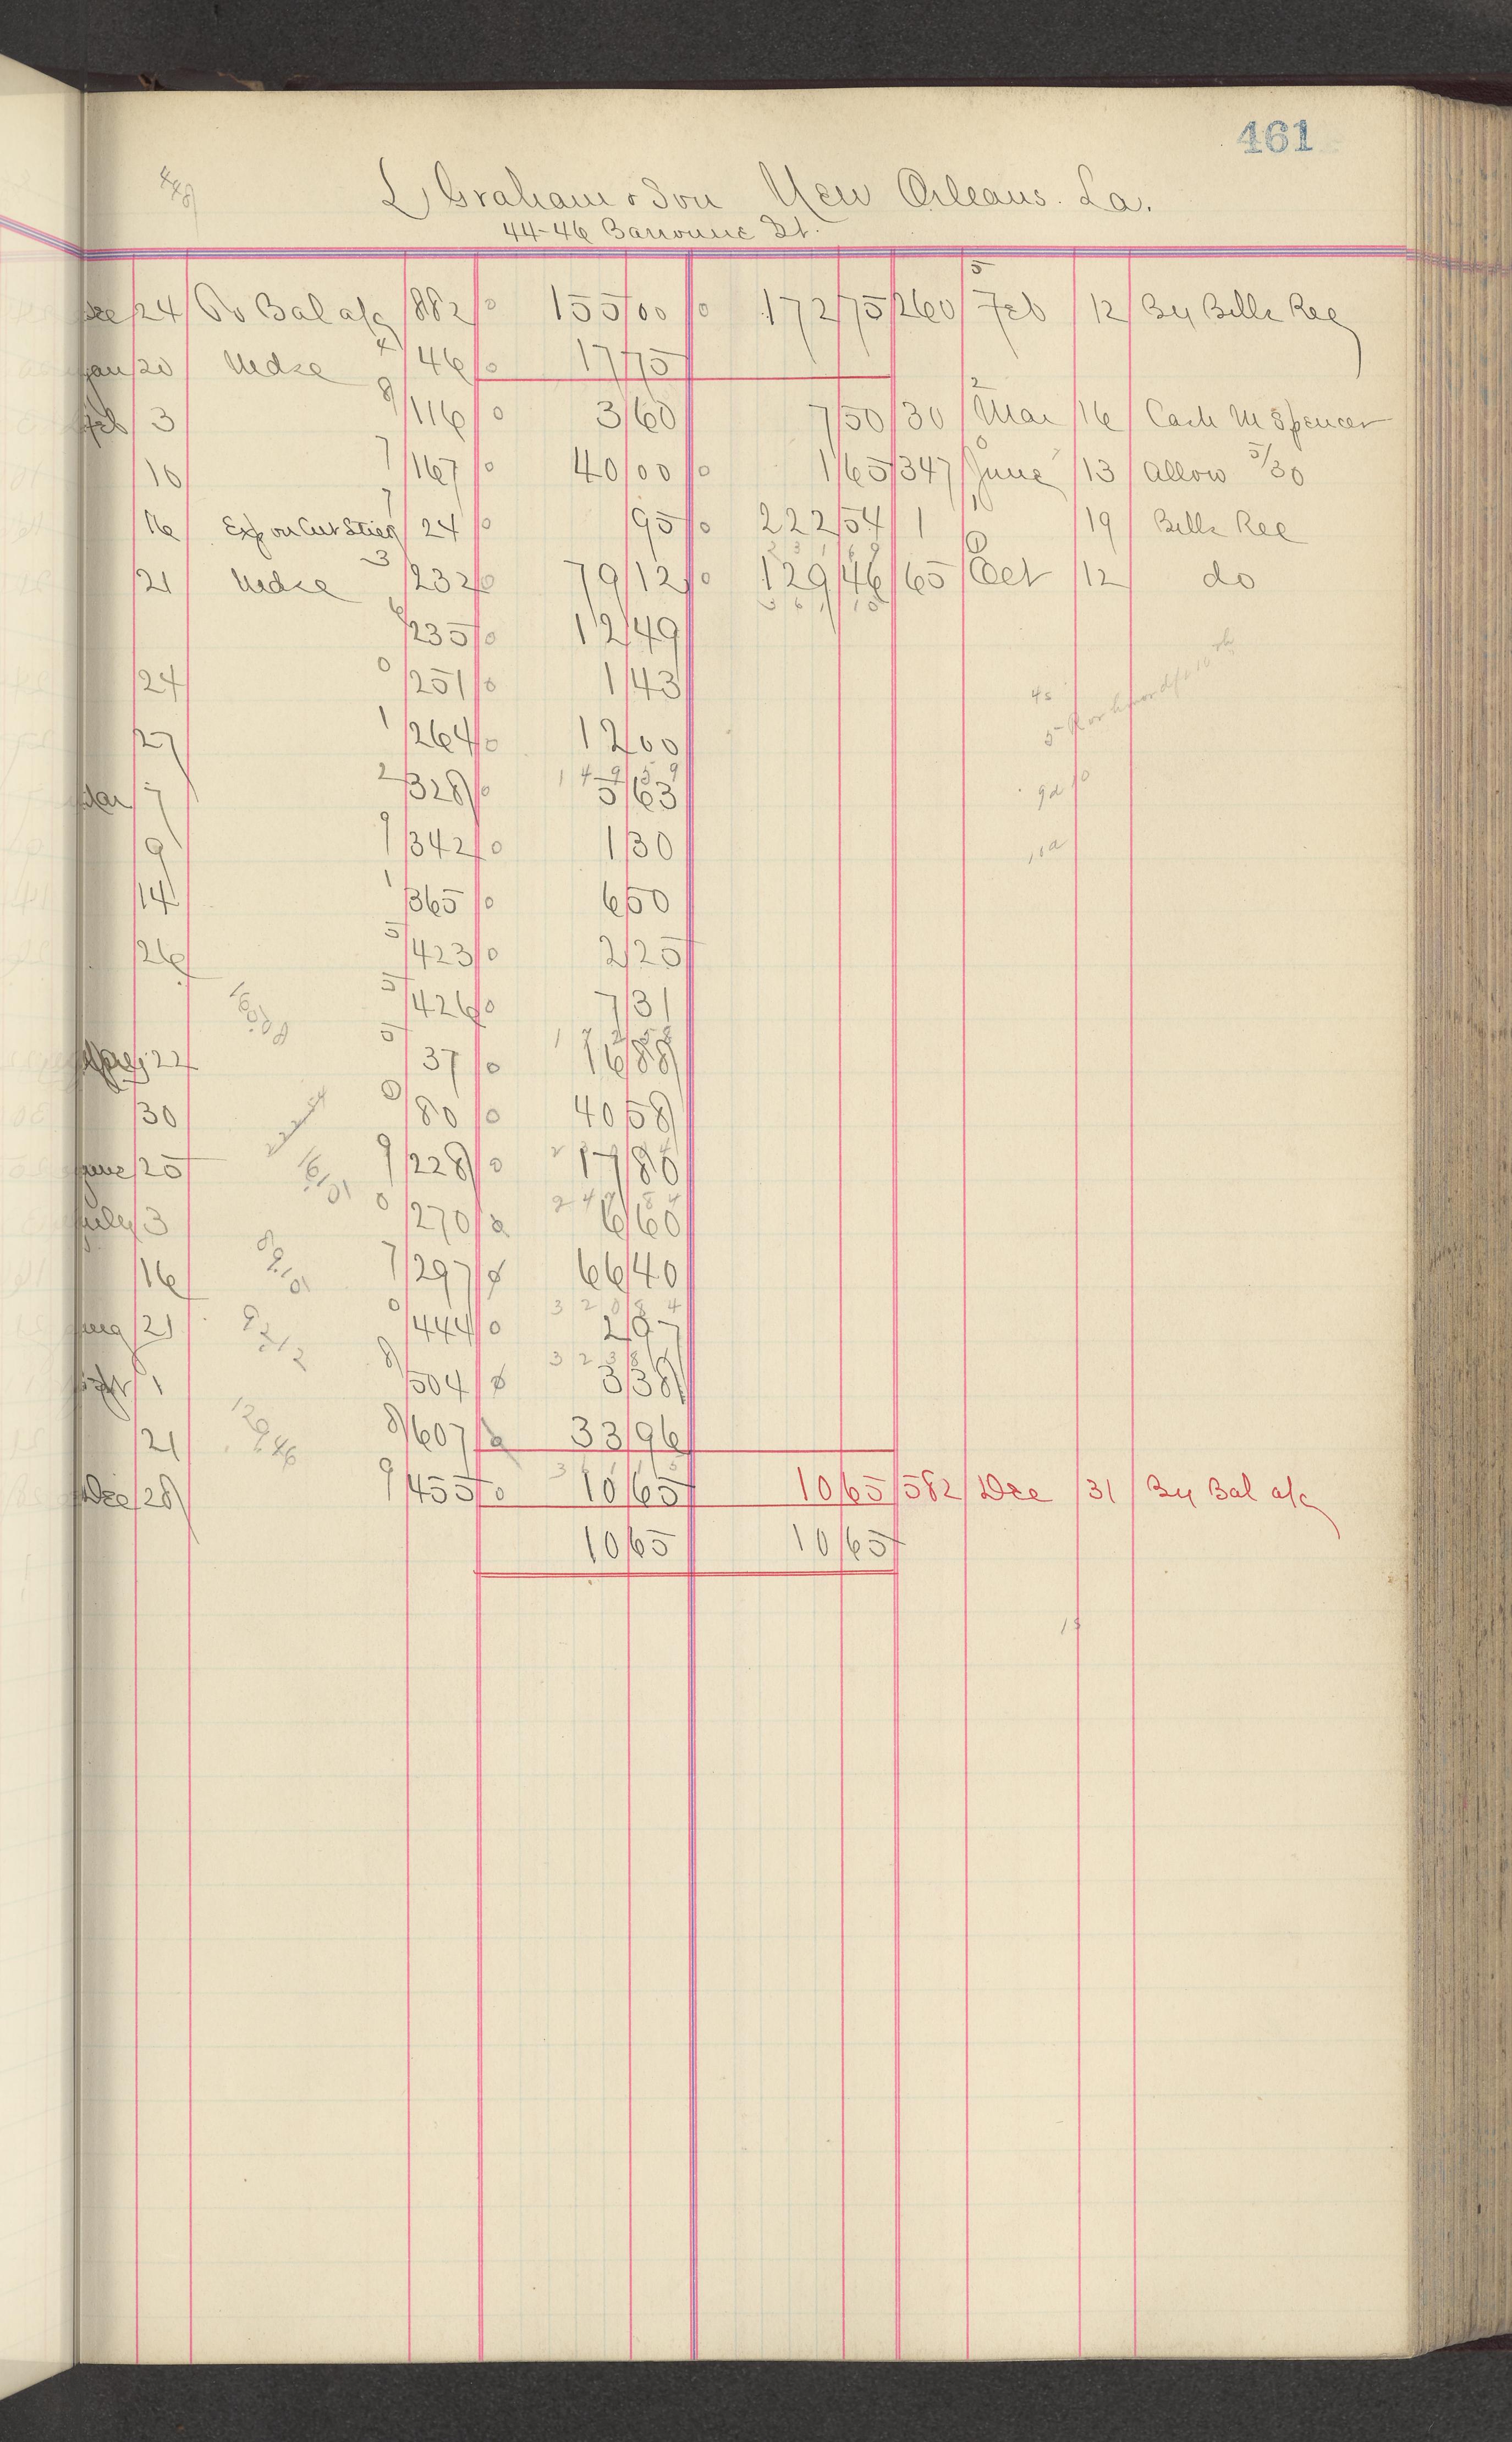 461
L Graham & Son New Orleans. La.
44-46 Baronne St.
Dec 24 To Bal a/c 882 155 00 172 75 260 Feb 12 By Bills Rec
Jan 20 Mdse 46 17 75
Feb 3 116 3 60 7 50 30 Mar 16 Cash M Spencer
10 167 40 00 1 65 347 June 13 Allow 5/30
16 Exp on Cut 24 95 222 54 1 19 Bills Rec
21 Mdse 232 79 12 129 46 65 Oct 12 do
235 12 49
24 251 1 43
27 264 12 00
Mar 7 328 5 63
9 342 1 30
14 365 6 50
26 423 2 25
426 7 31
May 22 37 16 88
30 80 40 58
June 25 228 17 86
July 3 270 6 60
16 297 66 40
Aug 21 444 2 97
Sept 1 504 3 38
21 607 33 96
Dec 28 455 10 65 10 65 582 Dec 31 By Bal a/c
10 65 10 65